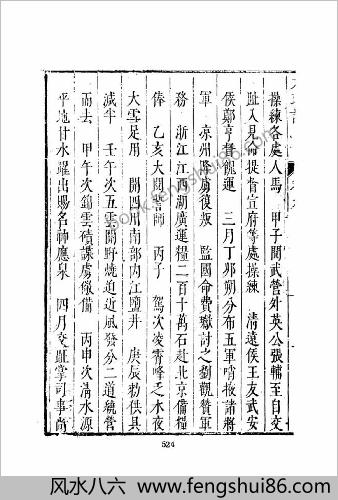 操練各處人馬　甲子閱武營外英公張輔至自交
趾入見俾提督宣府等處操練　清遠侯王友武安
侯鄭亨督饋運　三月丁夘朔分布五軍哨掖諸將
軍　凉州降虜復叛　監國命費瓛討之劉觀贊軍
務　浙江江西湖廣運糧二百十萬石赴北京備糧
俸　乙亥大閱誓師　丙子　駕次凌霄峰乏水夜
大雪足用　開四川南部内江鹽井　庚辰勑供具
減半　壬午次五雲關野燒迫近風發分二道繞營
而去　甲午次錦雲磧諜虜儆備　丙申次清水源
平地甘水躍出賜名神應泉　四月交趾掌司事尚
524
book.fengshui86.com
风水八六 www.fengshui86.com